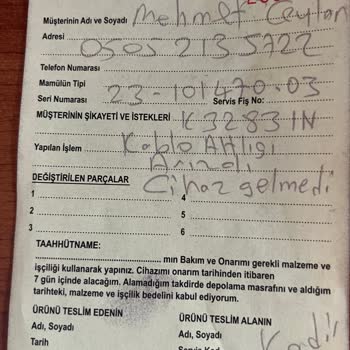 Müşterinin Adı ve Soyadı Mehmet Ceylan
Adresi
0505 213 5722
Telefon Numarası
Mamülün Tipi
23-101470-03
Seri Numarası Servis Fiş No:
MÜŞTERİNİN ŞİKAYETİ VE İSTEKLERİ K3283 IN
Yapılan İşlem Kablo Atlığı
Arızalı
DEĞİŞTİRİLEN PARÇALAR Cihaz gelmedi
1 4
2 5
3 6
TAAHHÜTNAME:
mın Bakım ve Onarımı gerekli malzeme ve
işçiliği kullanarak yapınız. Cihazımı onarım tarihinden itibaren
7 gün içinde alacağım. Alamadığım takdirde depolama masrafını ve aldığım
tarihteki, malzeme ve işçilik bedelini kabul ediyorum.
ÜRÜNÜ TESLİM EDENİN ÜRÜNÜ TESLİM ALANIN
Adı, Soyadı Adı, Soyadı Kadir
Tarih